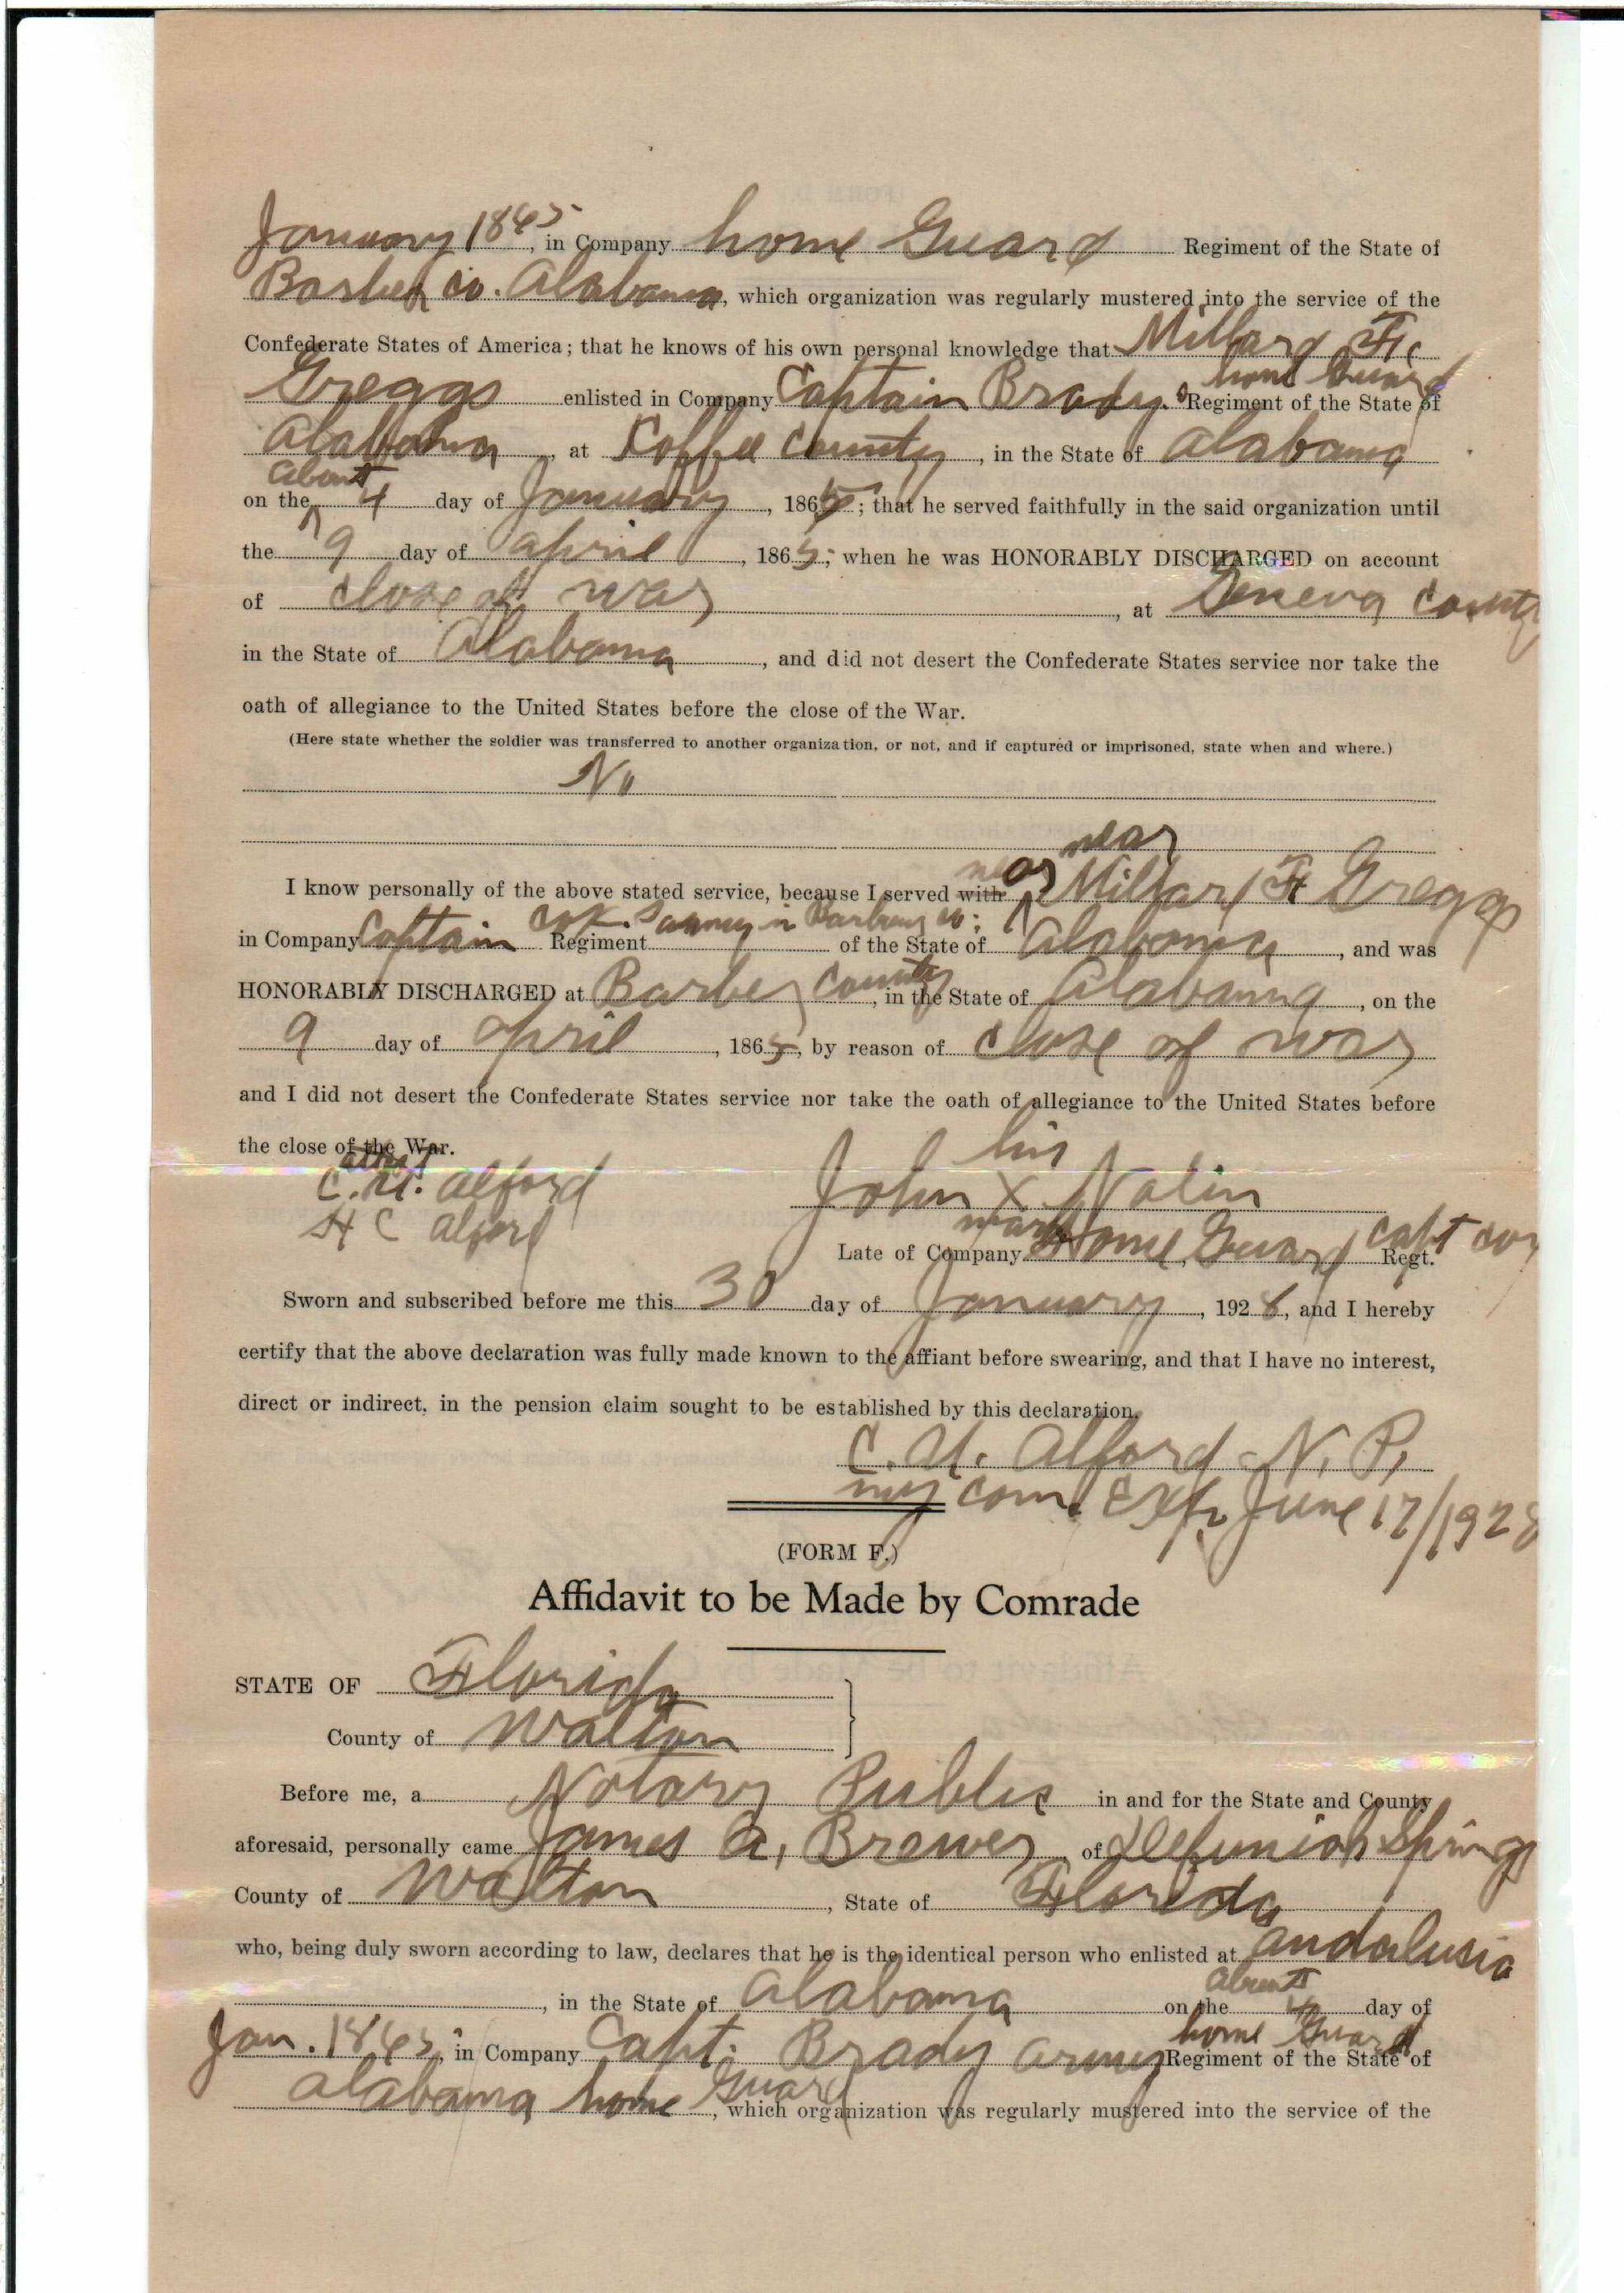 January 1865, in Company home Guard Regiment of the State of
Co. Alabama, which organization was regularly mustered into the service of the
Confederate States of America; that he knows of his own personal knowledge that Millard F.
Greggs enlisted in Company Captain Brady. home Guard Regiment of the State of
Alabama, at Koffee County, in the State of Alabama
on the about 4 day of January, 1865; that he served faithfully in the said organization until
the 9 day of april, 1865; when he was HONORABLY DISCHARGED on account
of close of war, at Geneva County
in the State of Alabama, and did not desert the Confederate States service nor take the
oath of allegiance to the United States before the close of the War.
(Here state whether the soldier was transferred to another organization, or not, and if captured or imprisoned, state when and where.)
No
near
I know personally of the above stated service, because I served with near Millard F Greggs
in Company Captain Regiment in Co. of the State of Alabama, and was
HONORABLY DISCHARGED at County, in the State of Alabama, on the
9 day of april, 1865, by reason of close of war
and I did not desert the Confederate States service nor take the oath of allegiance to the United States before
the close of the War.
attest his
C.U. Alford John X Nalin
H C Alford mark
Late of Company Home Guard Capt Regt.
Sworn and subscribed before me this 30 day of January, 1928, and I hereby
certify that the above declaration was fully made known to the affiant before swearing, and that I have no interest,
direct or indirect, in the pension claim sought to be established by this declaration.
C. U. Alford - N. P.
my com. Exp. June 17/1928
(FORM F.)
Affidavit to be Made by Comrade
STATE OF Florida
County of Walton
Before me, a Notary Public in and for the State and County
aforesaid, personally came James A. Brewer of Defuniak Springs
County of Walton, State of Florida
who, being duly sworn according to law, declares that he is the identical person who enlisted at andalusia
, in the State of Alabama on the about day of
Jan. 1865, in Company Capt. Brady army home Guard Regiment of the State of
alabama home Guard, which organization was regularly mustered into the service of the